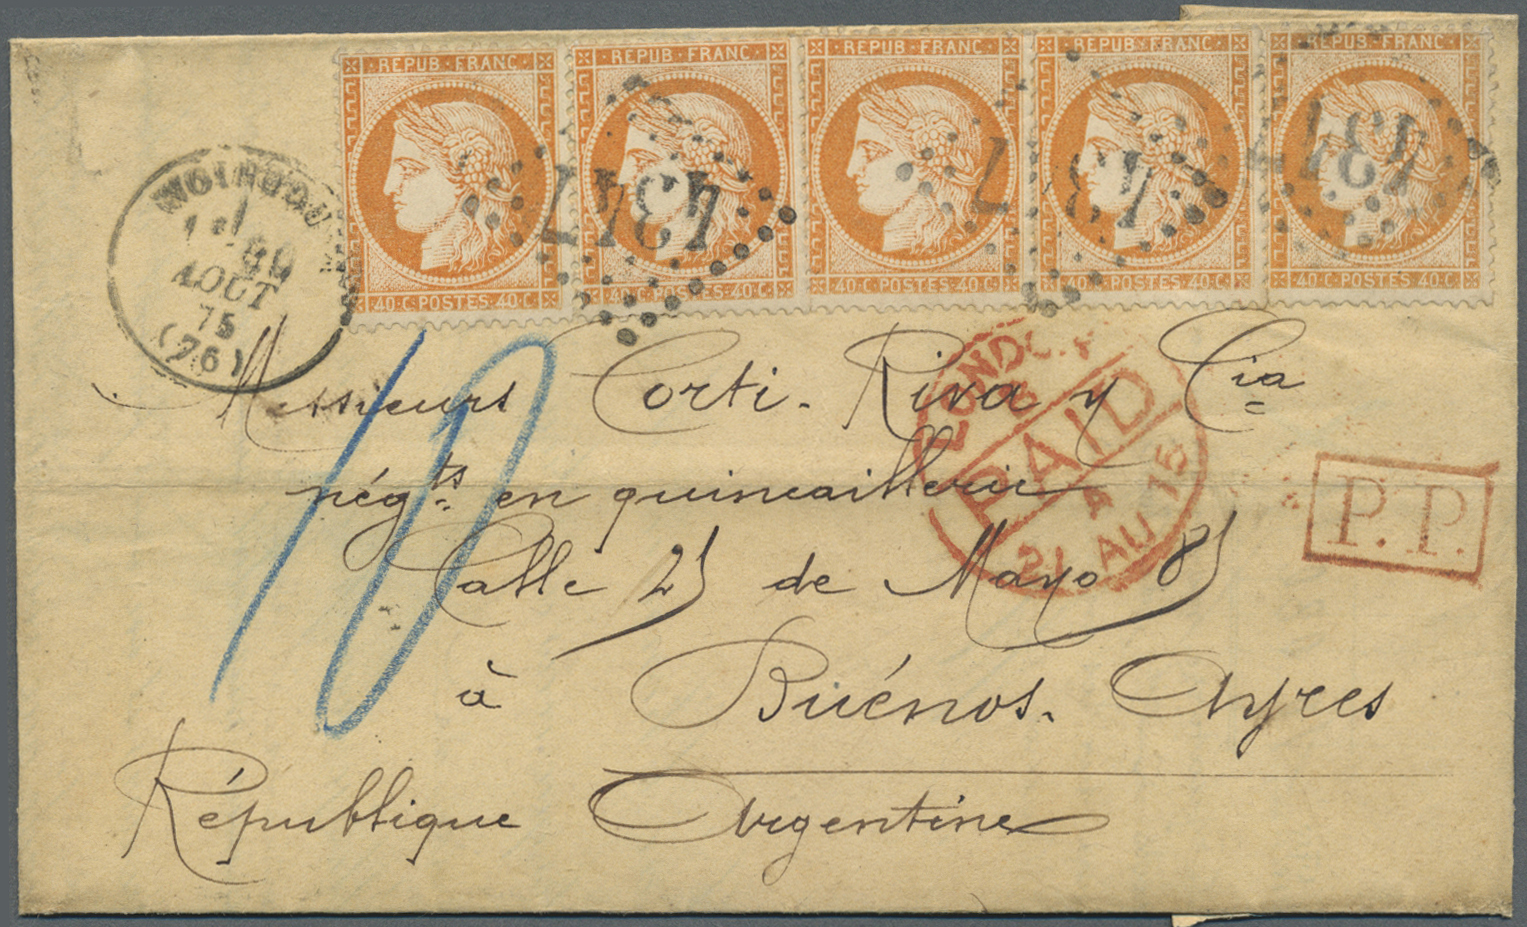 REPUB·FRANC REPUB·FRANC REPUB·FRANC REPUB·FRANC REPUB·FRANC
40·C·POSTES·40·C· 40·C·POSTES·40·C· 40·C·POSTES·40·C· 40·C·POSTES·40·C· 40·C·POSTES·40·C·
4347
AOUT
75
(76)
10
Messieurs Corti. Riva y Cia
négts en quincaillerie
Calle 25 de Mayo 85
à Buénos. Ayres
République Argentine
LONDON
PAID
21 AU 75
P.P.